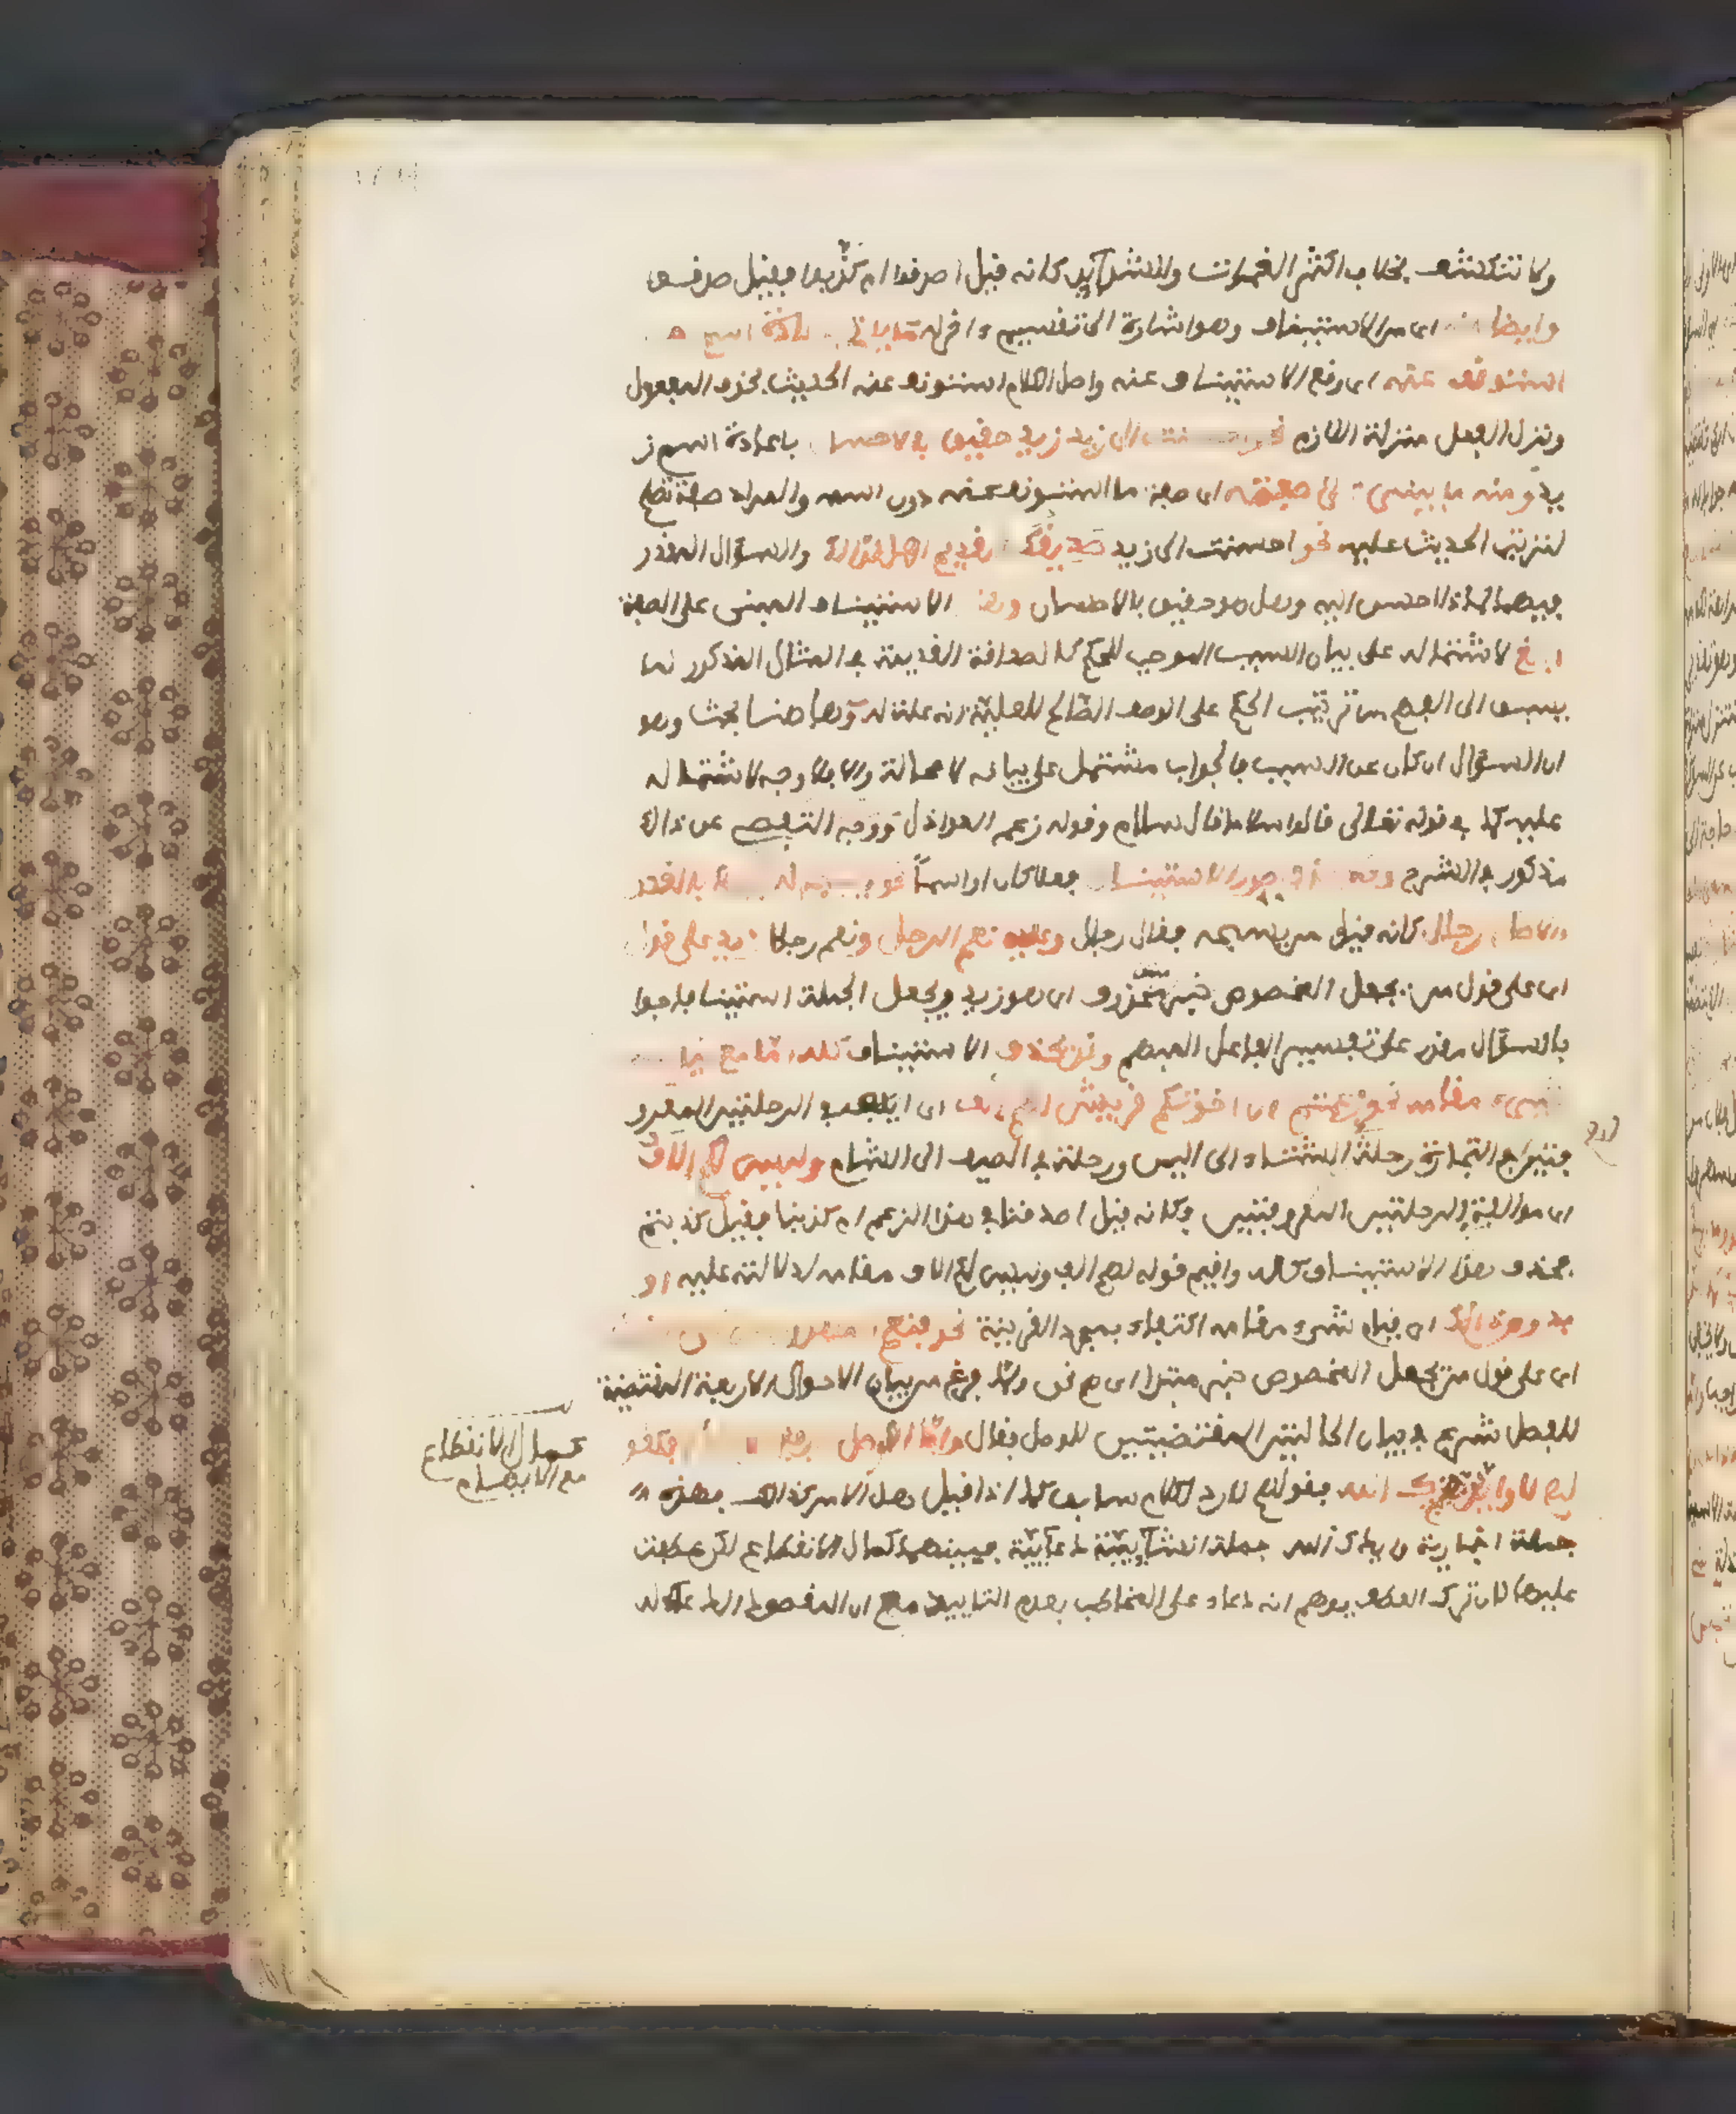 ولا تنكشف بخلاف اكثر الغمرات والشدايد كانه قيل اصدقوا ام كذبوا فقيل صدقوا
وايضا اى من الاستيناف وهو اشارة الى تقسيم اخر له ما ياتى باعادة اسم ما
استونف عنه اى وقع الاستيناف عنه واصل الكلام استونف عنه الحديث بحذف المفعول
ونزل الفعل منزلة اللازم نحو احسنت الى زيد زيد حقيق بالاحسان باعادة اسم ز
يد ومنه ما يبنى على صفته اى صفة ما استونف عنه دون اسمه والمراد صفة تصلح
لترتب الحديث عليه نحو احسنت الى زيد صديقك القديم اهل لذلك والسؤال المقدر
فيهما لماذا احسن اليه وهل هو حقيق بالاحسان وهذا الاستيناف المبنى على الصفة
ابلغ لاشتماله على بيان السبب الموجب للحكم كالصداقة القديمة فى المثال المذكور لما
يسبق الى الفهم من ترتيب الحكم على الوصف الصالح للعلية انه علة له وهاهنا بحث وهو
ان السؤال ان كان عن السبب فالجواب مشتمل على بيانه لا محالة والا فلا وجه لاشتماله
عليه كما فى قوله تعالى قالوا سلاما قال سلام وقوله زعم العواذل ووجه التفصى عن ذلك
مذكور فى الشرح وقد يحذف صدر الاستيناف فعلا كان او اسما نحو يسبح له فيها بالغدو
والاصال رجال كانه قيل من يسبحه فقال رجال وعليه نعم الرجل ونعم رجلا زيد على قول
اى على قول من يجعل المخصوص خبر مبتدا محذوف اى هو زيد ويجعل الجملة استينافا جوا
با لسؤال مقدر على تفسير الفاعل المبهم وقد يحذف الاستيناف كله اما مع قيام
شىء مقامه نحو زعمتم ان اخوتكم قريش لهم الف اى ايلاف فى الرحلتين المعرو
فتين فى التجارة رحلة الشتاء الى اليمن ورحلة فى الصيف الى الشام وليس لكم الاف
اى موالفة فى الرحلتين المعروفتين وكانه قيل اصدقنا فى هذا الزعم ام كذبنا فقيل كذبتم
فحذف هذا الاستيناف كله واقيم قوله لهم الف وليس لكم الاف مقامه لدلالته عليه او
بدون ذلك اى قيام شىء مقامه اكتفاء بمجرد القرينة نحو فنعم الماهدون
اى على قول من يجعل المخصوص خبر مبتدا اى هم نحن ولما فرغ من بيان الاحوال الاربعة المقتضية
للفصل شرع فى بيان الحالتين المقتضيتين للوصل فقال واما الوصل فكقو
لهم لا وايدك الله فقولهم لا رد لكلام سابق كما اذا قيل هل الامر كذلك فهذه
جملة اخبارية وايدك الله جملة انشائية دعائية فبينهما كمال الانقطاع لكن عطفت
عليها لان ترك العطف يوهم انه دعاء على المخاطب بعدم التاييد مع ان المقصود الدعاء له
كمال الانقطاع
مع الايهام